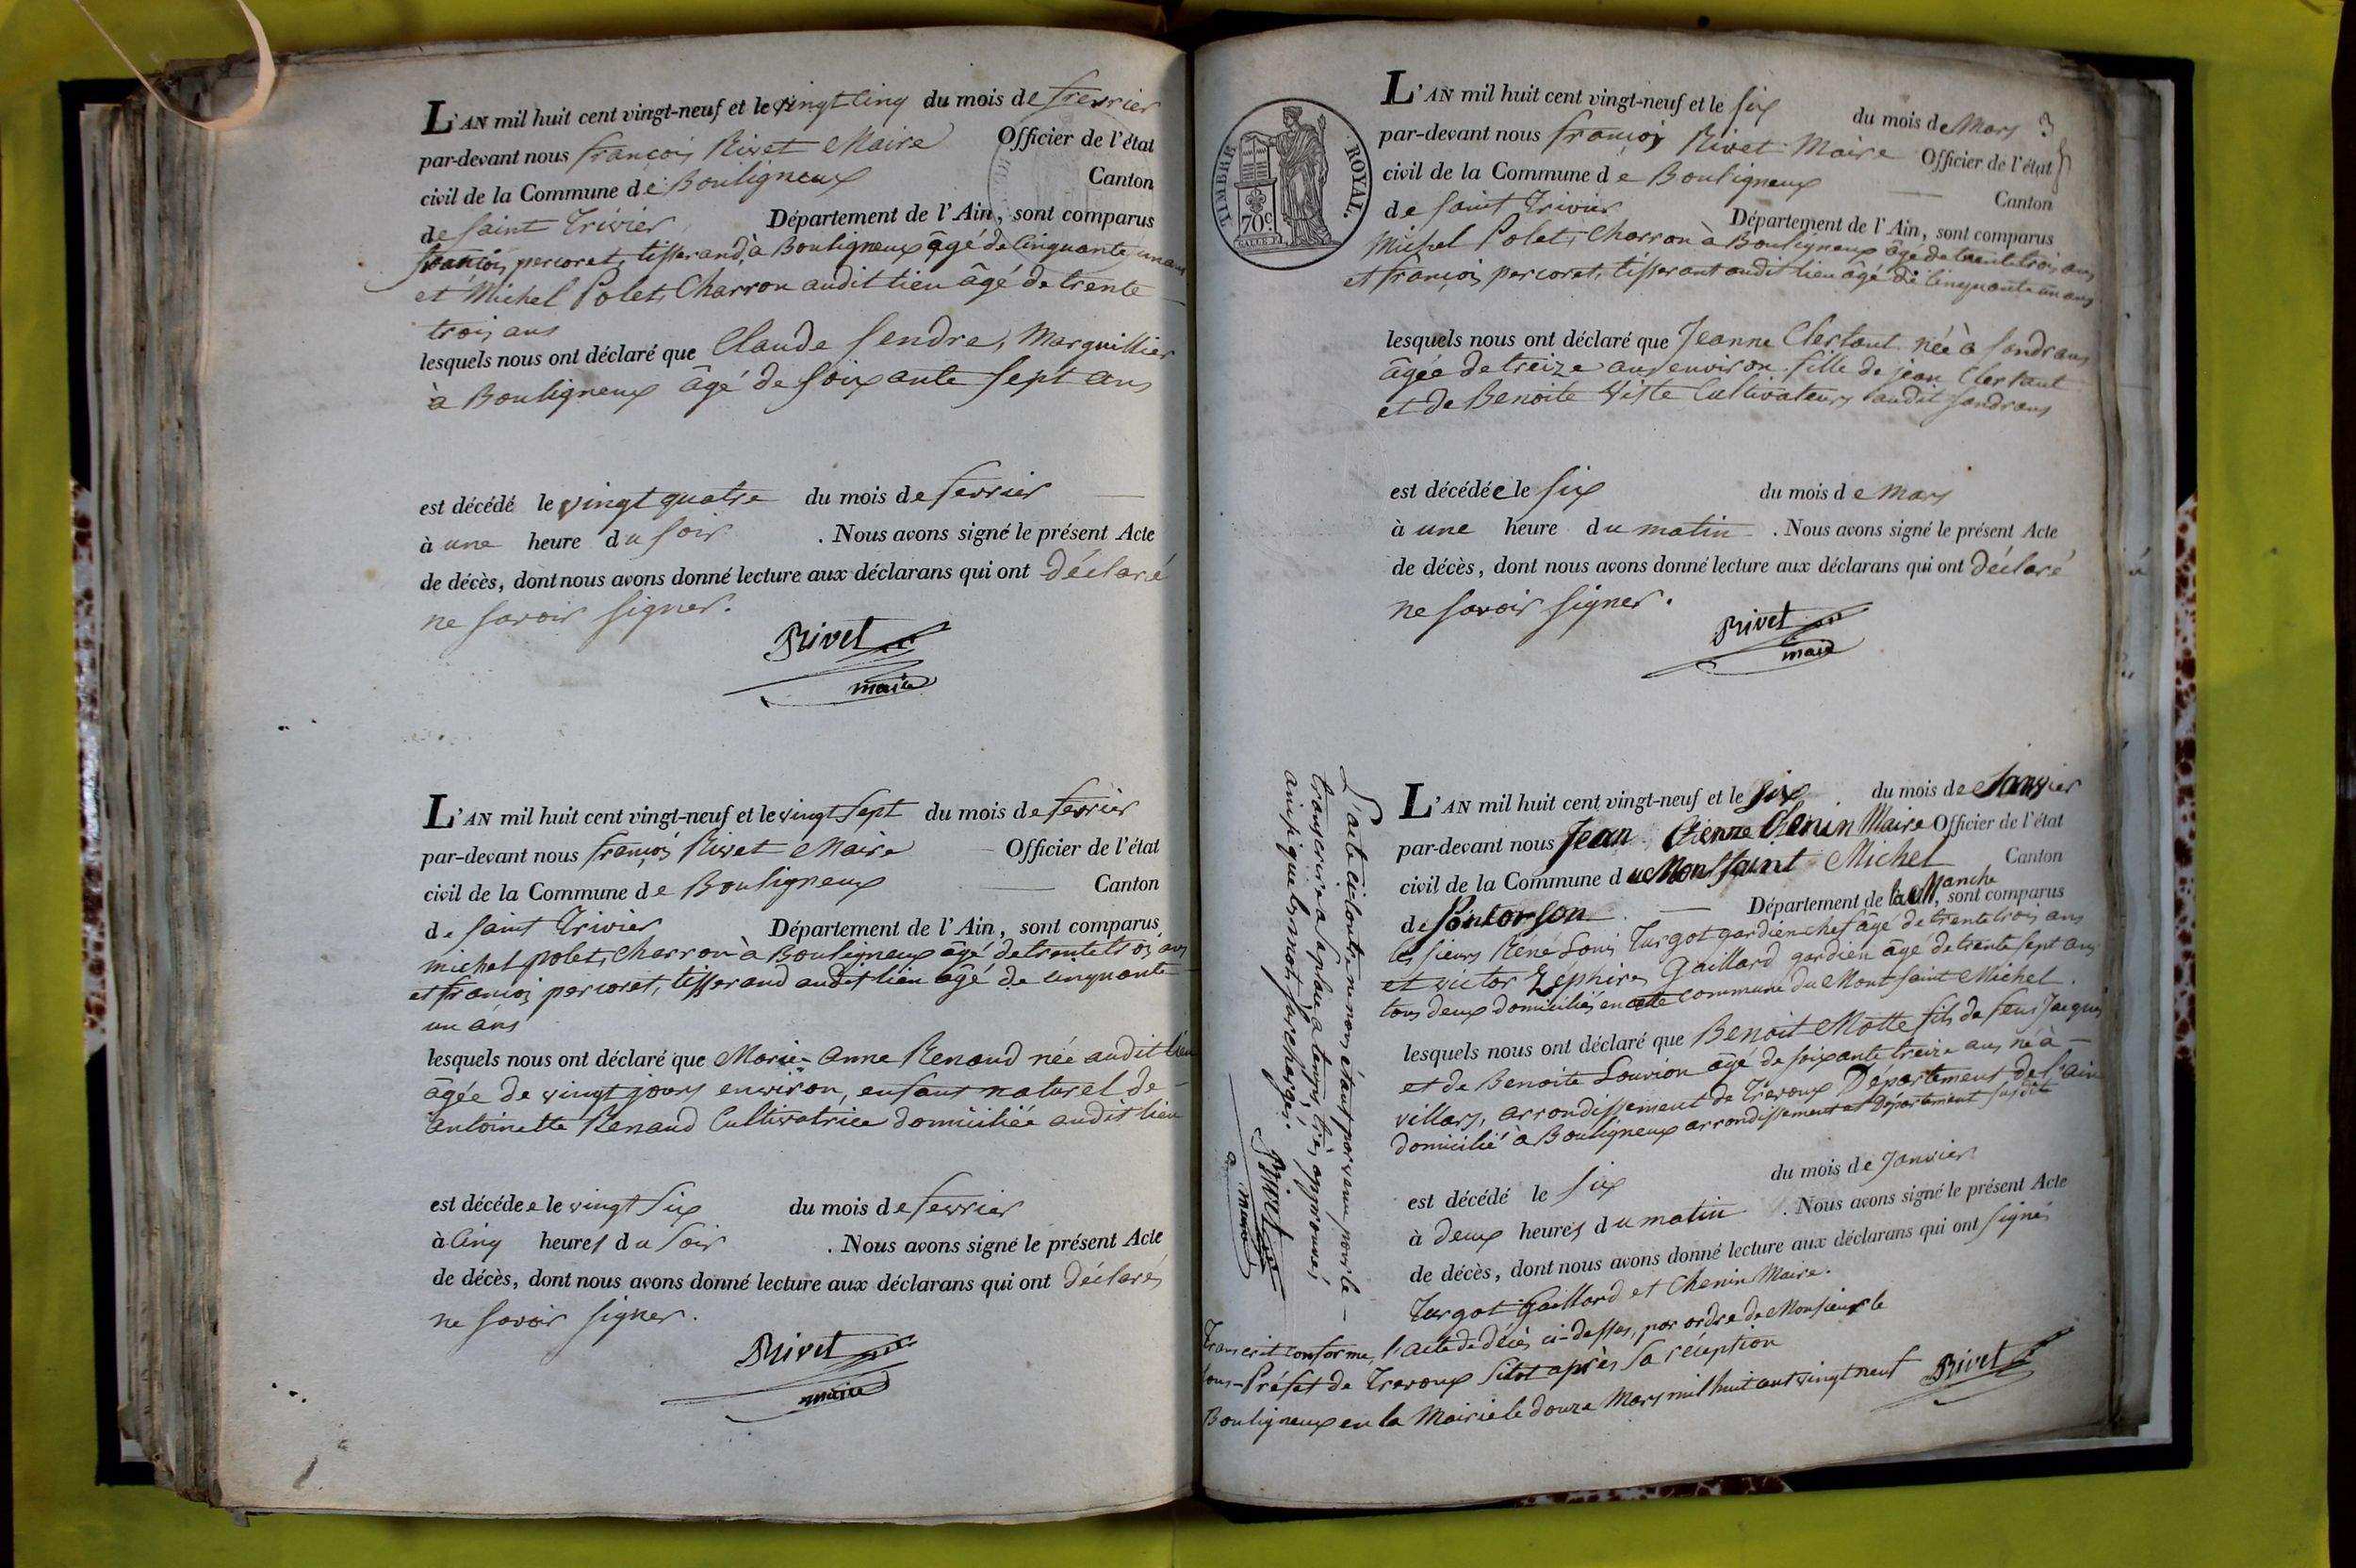 L'AN mil huit cent vingt-neuf et le vingt cinq du mois de fevrier
par-devant nous françois Rivet Maire Officier de l'état
civil de la Commune de Bouligneux Canton
de saint Trivier Département de l'Ain, sont comparus
françois percoret, tisserand à Bouligneux âgé de Cinquante un ans
et Michel Polet, Charron audit lieu âgé de trente
trois ans
lesquels nous ont déclaré que Claude Sendre, Marguillier
à Bouligneux âgé de soixante sept ans
est décédé le vingt quatre du mois de fevrier
à une heure du soir. Nous avons signé le présent Acte
de décès, dont nous avons donné lecture aux déclarans qui ont déclaré
ne savoir signer.
Rivet
maire
L'AN mil huit cent vingt-neuf et le vingt sept du mois de fevrier
par-devant nous françois Rivet Maire Officier de l'état
civil de la Commune de Bouligneux Canton
de saint Trivier Département de l'Ain, sont comparus
michel polet, charron à Bouligneux âgé de trente trois ans
et françois percoret, tisserand audit lieu âgé de cinquante
un ans
lesquels nous ont déclaré que Marie-Anne Renaud née audit lieu
âgée de vingt jours environ, enfant naturel de
antoinette Renaud Cultivatrice domiciliée audit lieu
est décédée le vingt six du mois de fevrier
à Cinq heures du soir. Nous avons signé le présent Acte
de décès, dont nous avons donné lecture aux déclarans qui ont déclarés
ne savoir signer.
Rivet
maire
TIMBRE ROYAL.
70c
3
L'AN mil huit cent vingt-neuf et le six du mois de Mars
par-devant nous françois Rivet Maire Officier de l'état
civil de la Commune de Bouligneux Canton
de saint Trivier Département de l'Ain, sont comparus
Michel Polet, Charron à Bouligneux âgé de trente trois ans
et françois percoret, tisserant audit lieu âgé de cinquante un ans
lesquels nous ont déclaré que Jeanne Clertant née à sandrans
âgée de treize ans environ fille de jean Clertant
et de Benoite Viste Cultivateurs audit sandrans
est décédée le six du mois de Mars
à une heure du matin. Nous avons signé le présent Acte
de décès, dont nous avons donné lecture aux déclarans qui ont déclaré
ne savoir signer.
Rivet
maire
L'AN mil huit cent vingt-neuf et le six du mois de Janvier
par-devant nous Jean Etienne Chenin Maire Officier de l'état
civil de la Commune du Mont saint Michel Canton
de Pontorson Département de la Manche, sont comparus
les sieurs René Louis Turgot gardien chef âgé de trente trois ans
et victor Zephire Gaillard gardien âgé de trente sept ans
tous deux domiciliés en cette commune du Mont saint Michel.
lesquels nous ont déclaré que Benoit Motte fils de feus Jacques
et de Benoite Louvion âgé de soixante treize ans né à
villars, arrondissement de Trevoux Département de l'ain
domicilié à Bouligneux arrondissement et Département susdit
est décédé le six du mois de Janvier
à deux heures du matin. Nous avons signé le présent Acte
de décès, dont nous avons donné lecture aux déclarans qui ont signés
Turgot Gaillard et Chenin Maire.
Transcrit conforme, l'acte de décès ci-dessus, par ordre de Monsieur le
sous-Préfet de Trevoux sitot après sa réception
Bouligneux en la Mairie le douze Mars mil huit cent vingt neuf Rivet
L'acte ci contre ne nous étant parvenu pour le
transcrire a sa place a temps, approuvés
ainsi que les mots surchargés.
Rivet
maire